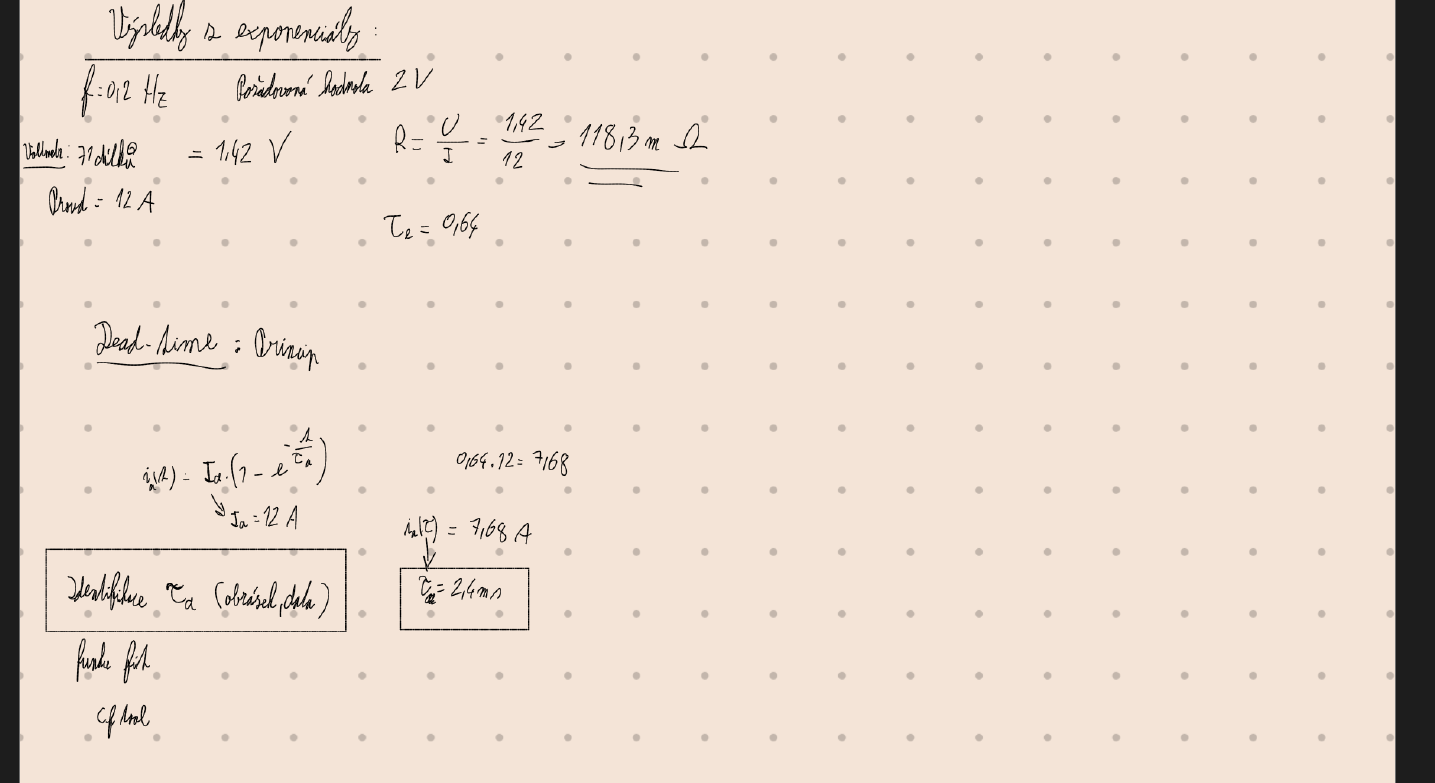 Výsledky z exponenciály:
f = 0,2 Hz Požadovaná hodnota 2 V
71 dílků = 1,42 V
R = U/I = 1,42/12 = 118,3 m Ω
Proud = 12 A
τe = 0,64
Dead-time : Princip
ia(t) = Ia.(1 - e^(-t/τa))
0,64.12 = 7,68
Ia = 12 A
ia(τ) = 7,68 A
Identifikace τa (obrázek, data)
τa = 2,4 ms
funkce fit
cftool